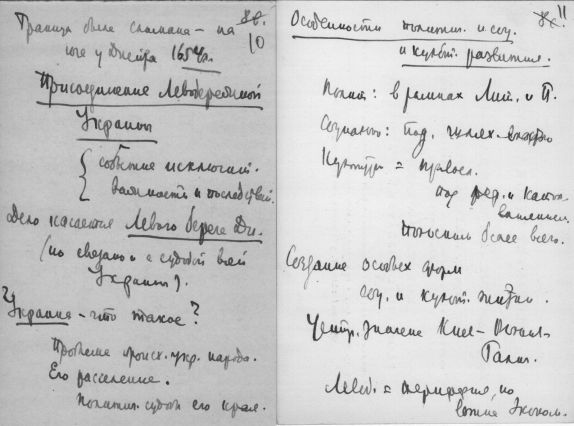 Граница была сломана – на
10
юге у Днепра 1654 г.
Присоединение Левобережной
Украины
событие исключит.
важности и последствий.
Дело касается Левого берега Дн.
(но связано и с судьбой всей
Украины).
? Украина – что такое?
Проблема происх. укр. народа.
Его расселение.
Политич. судьба его края.
11
Особенности политич. и соц.
и культ. развития.
Полит: в рамках Лит. и П.
Социально: под
Культурн = правосл.
под и катол.
более всего.
Создание особых форм
соц. и культ. жизни.
Центр. значение Киев – Волын –
Галич.
Левоб. = периферия, но